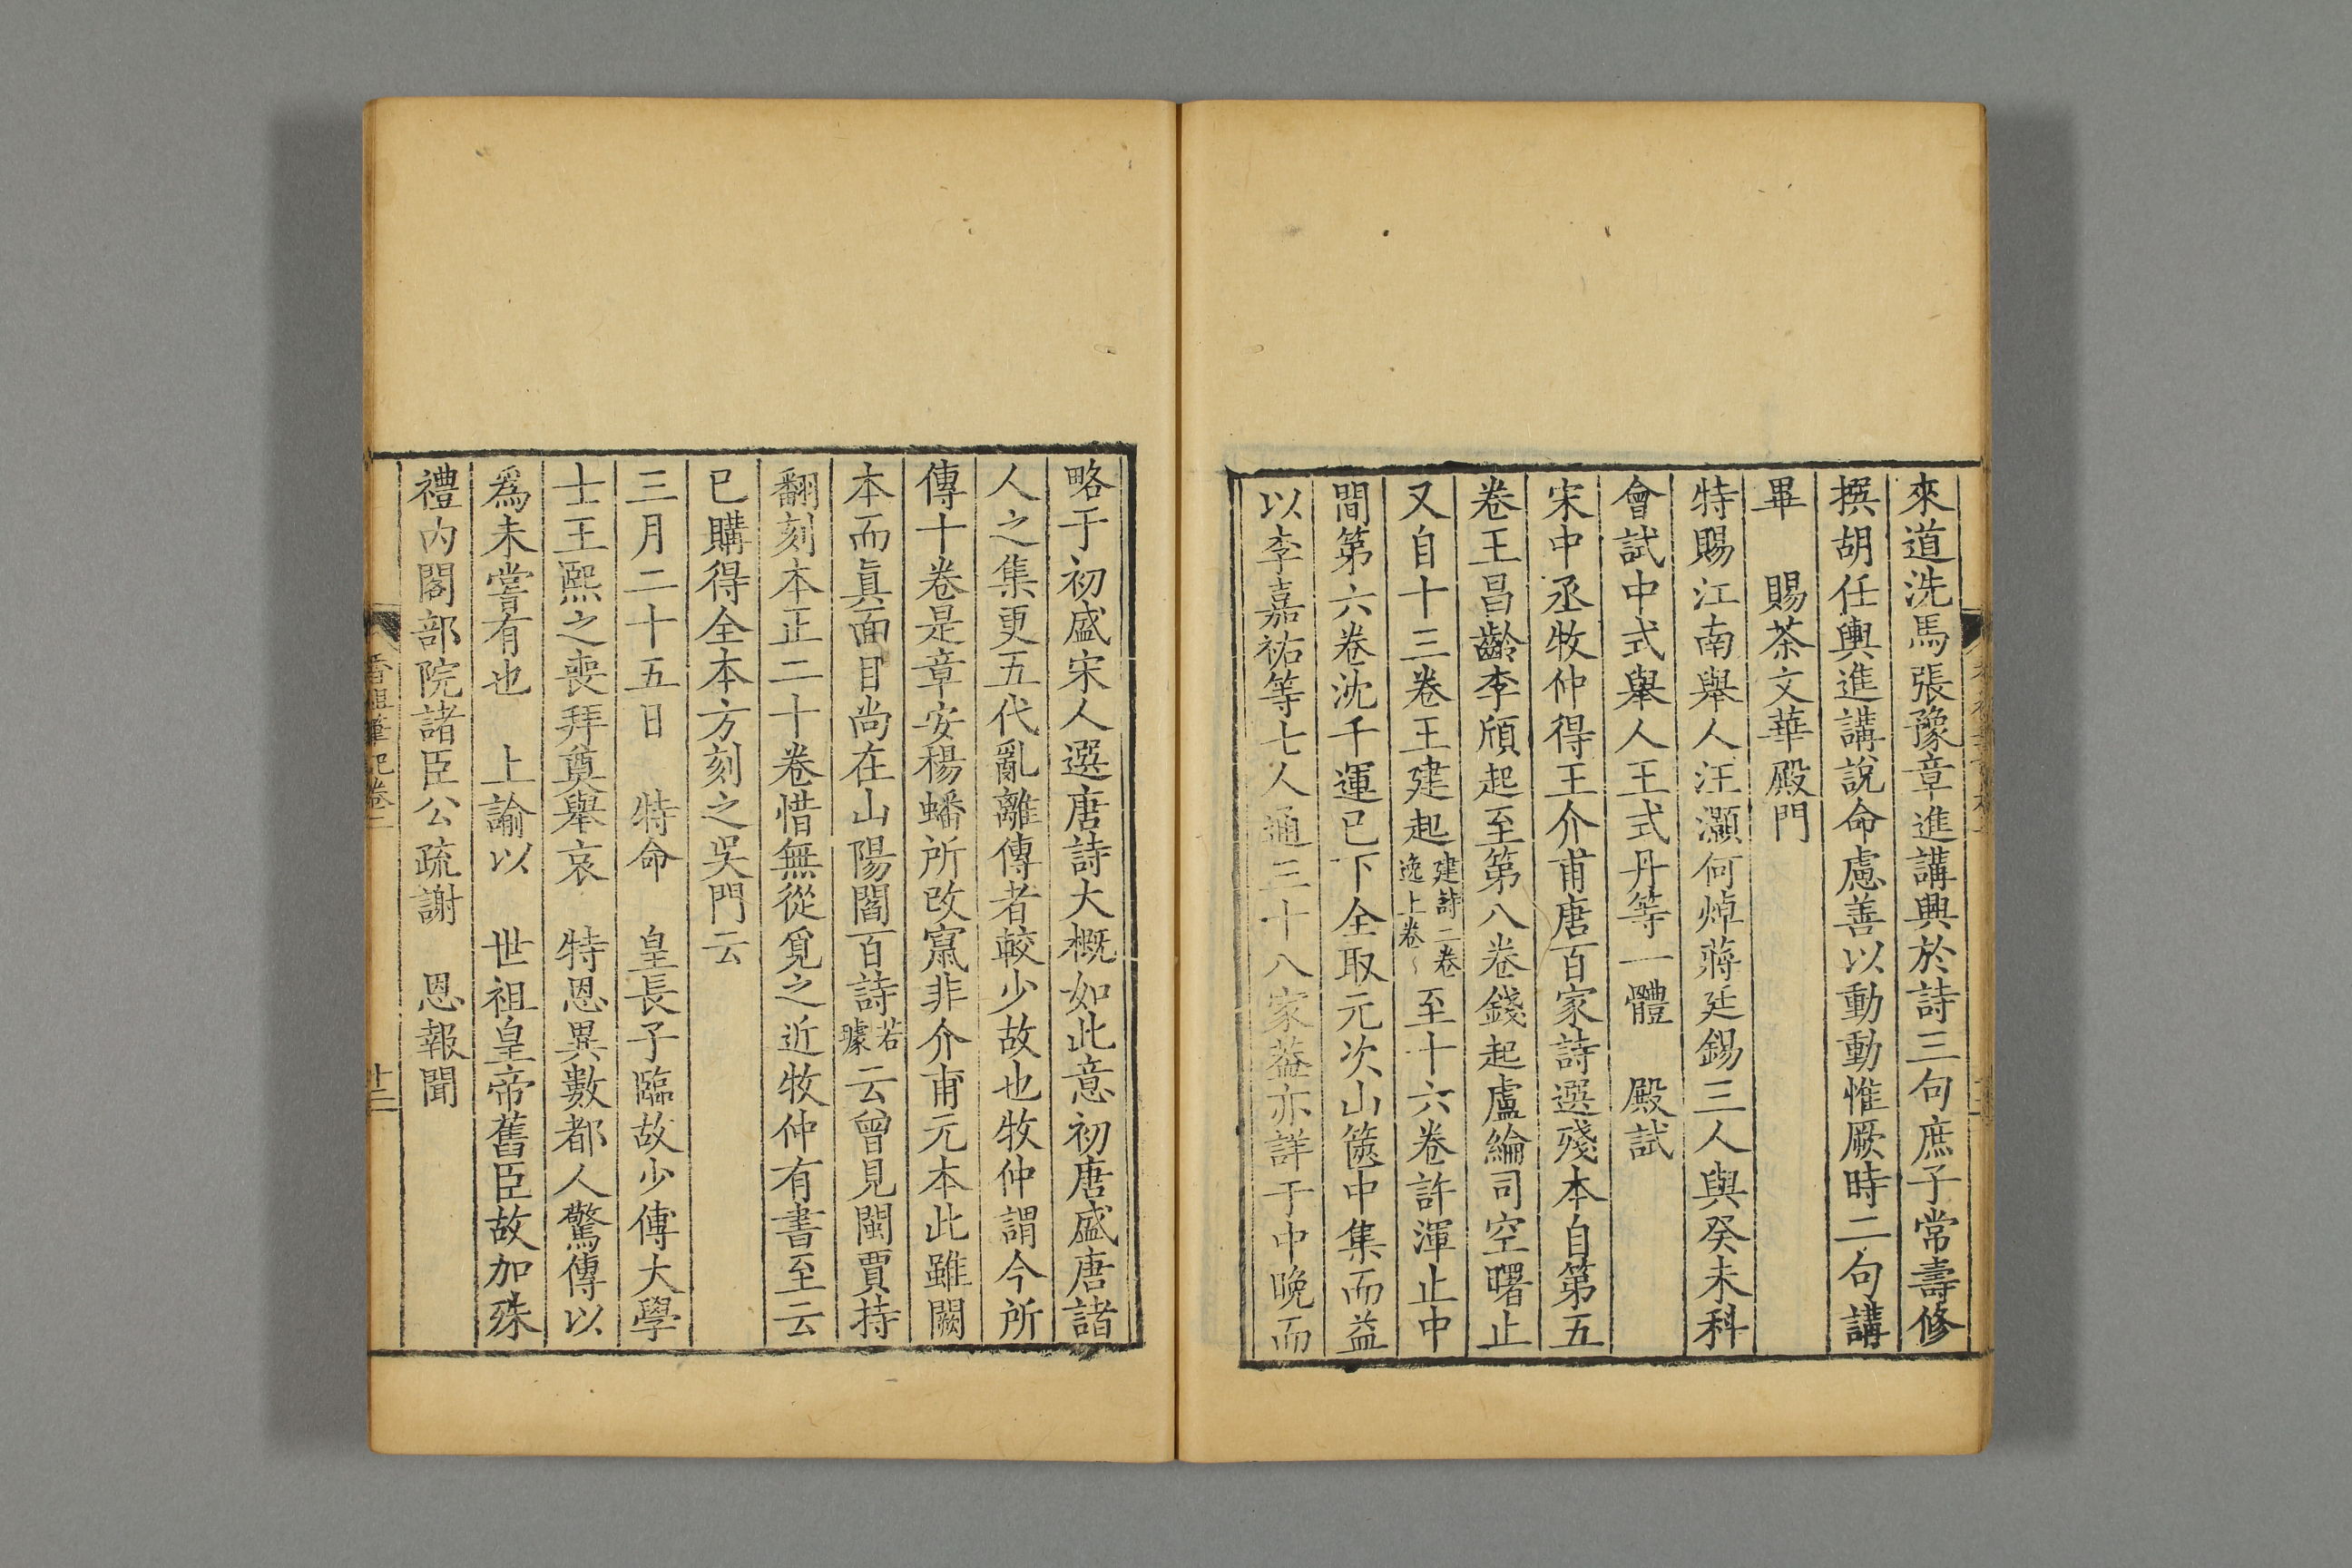 來道洗馬張豫章進講興於詩三句庶子常壽修
撰胡任輿進講說命慮善以動動惟厥時二句講
畢　賜茶文華殿門
特賜江南舉人汪灝何焯蔣廷錫三人與癸未科
會試中式舉人王式丹等一體　殿試
宋中丞牧仲得王介甫唐百家詩選殘本自第五
卷王昌齡李頎起至第八卷錢起盧綸司空曙止
又自十三卷王建起建詩二卷逸上卷至十六卷許渾止中
間第六卷沈千運已下全取元次山篋中集而益
以李嘉祐等七人通三十八家葢亦詳于中晚而
略于初盛宋人選唐詩大概如此意初唐盛唐諸
人之集更五代亂離傳者較少故也牧仲謂今所
傳十卷是章安楊蟠所改竄非介甫元本此雖闕
本而眞面目尚在山陽閻百詩若璩云曾見閩賈持
翻刻本正二十卷惜無從覓之近牧仲有書至云
已購得全本方刻之吳門云
三月二十五日　特命　皇長子臨故少傅大學
士王熙之喪拜奠舉哀　特恩異數都人驚傳以
爲未嘗有也　上諭以　世祖皇帝舊臣故加殊
禮內閣部院諸臣公疏謝　恩報聞
香祖筆記卷二
十三